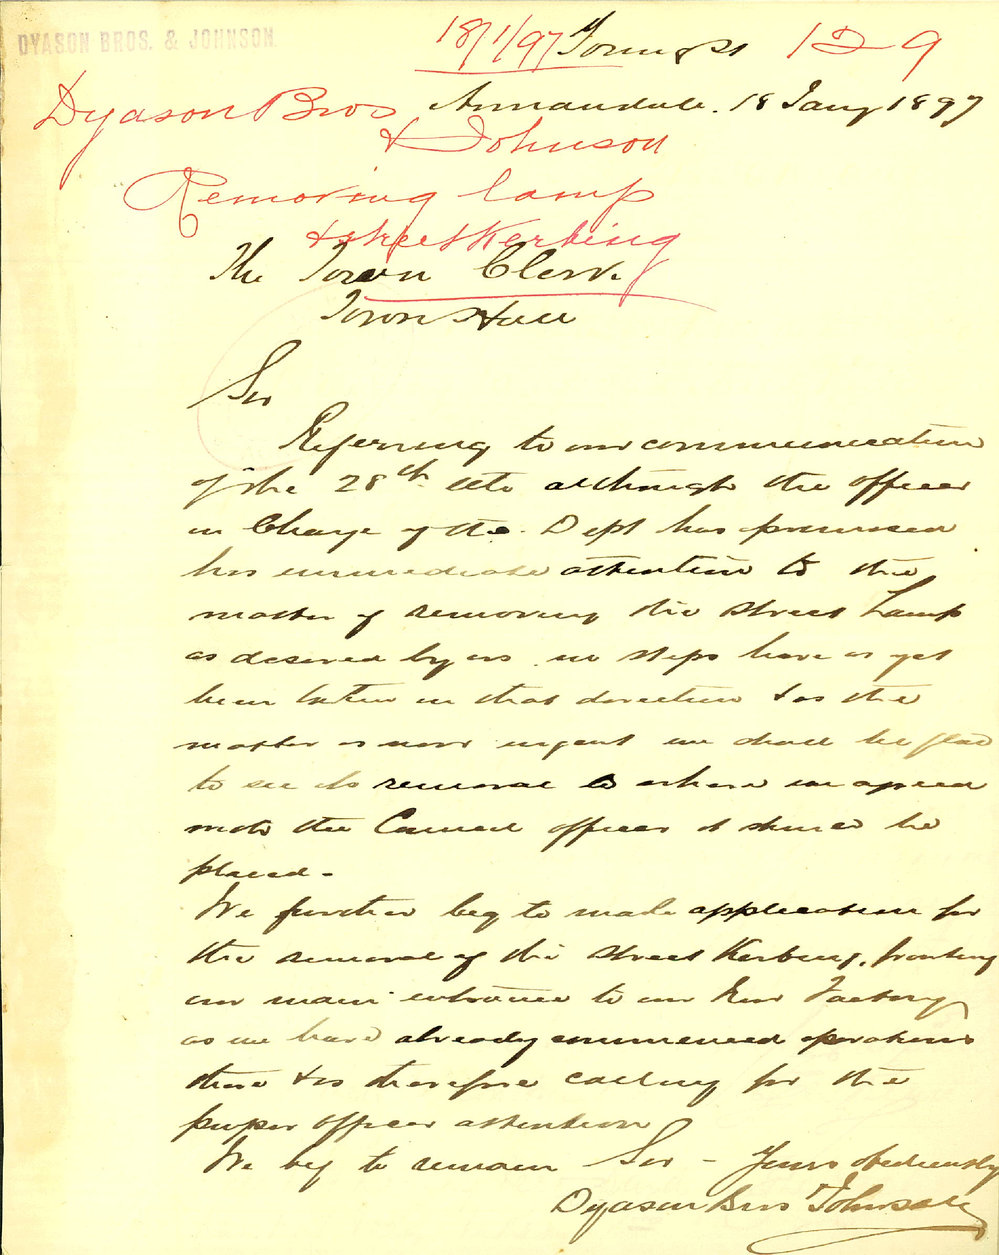 DYASON BROS. & JOHNSON.
18/1/97 Young St 129
Annandale. 18 Jany 1897
Dyason Bros
& Johnson
Removing lamp
& street Kerbing
The Town Clerk
Town Hall
Sir
Referring to our communication
of the 28th ulto although the officer
in Charge of the Dept has promised
his immediate attention to the
matter of removing the street Lamp
as desired by us no steps have as yet
been taken in that direction & as the
matter is now urgent we shall be glad
to see its removal to where we agreed
with the Council officer it should be
placed -
We further beg to make application for
the removal of the street Kerbing, fronting
our main entrance to our New Factory
as we have already commenced operations
there & is therefore calling for the
proper officer attention
We beg to remain Sir - Yours obediently
Dyason Bros Johnson